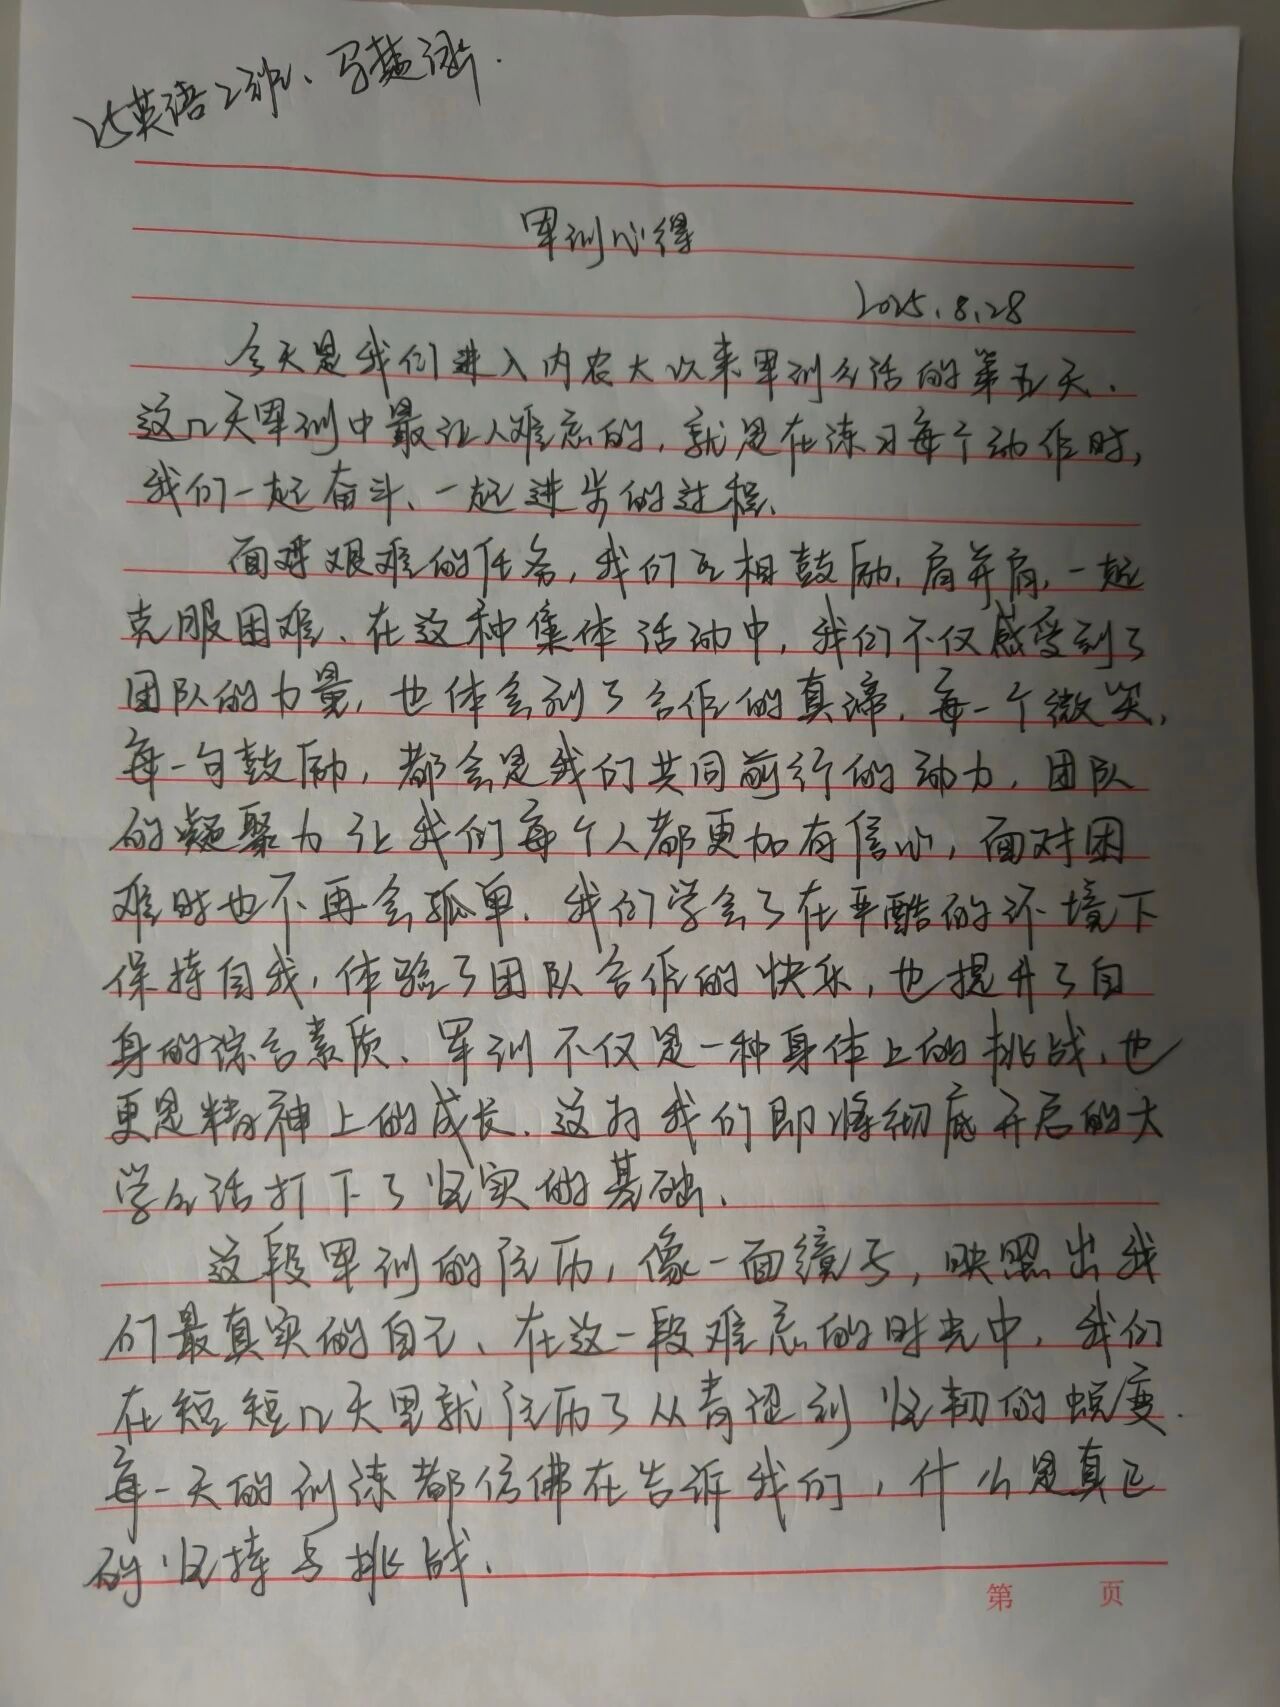 25英语2班、马楚涵.
军训心得
2025.8.28
今天是我们进入内农大以来军训生活的第五天.
这几天军训中最让人难忘的,就是在练习每个动作时,
我们一起奋斗、一起进步的过程.
面对艰难的任务,我们互相鼓励,肩并肩,一起
克服困难、在这种集体活动中,我们不仅感受到了
团队的力量,也体会到了合作的真谛.每一个微笑,
每一句鼓励,都会是我们共同前行的动力.团队
的凝聚力让我们每个人都更加有信心,面对困
难时也不再会孤单.我们学会了在严酷的环境下
保持自我,体验了团队合作的快乐,也提升了自
身的综合素质、军训不仅是一种身体上的挑战,也
更是精神上的成长.这为我们即将彻底开启的大
学生活打下了坚实的基础.
这段军训的经历,像一面镜子,映照出我
们最真实的自己、在这一段难忘的时光中,我们
在短短几天里就经历了从青涩到坚韧的蜕变.
每一天的训练都仿佛在告诉我们,什么是真正
的坚持与挑战.
第 页